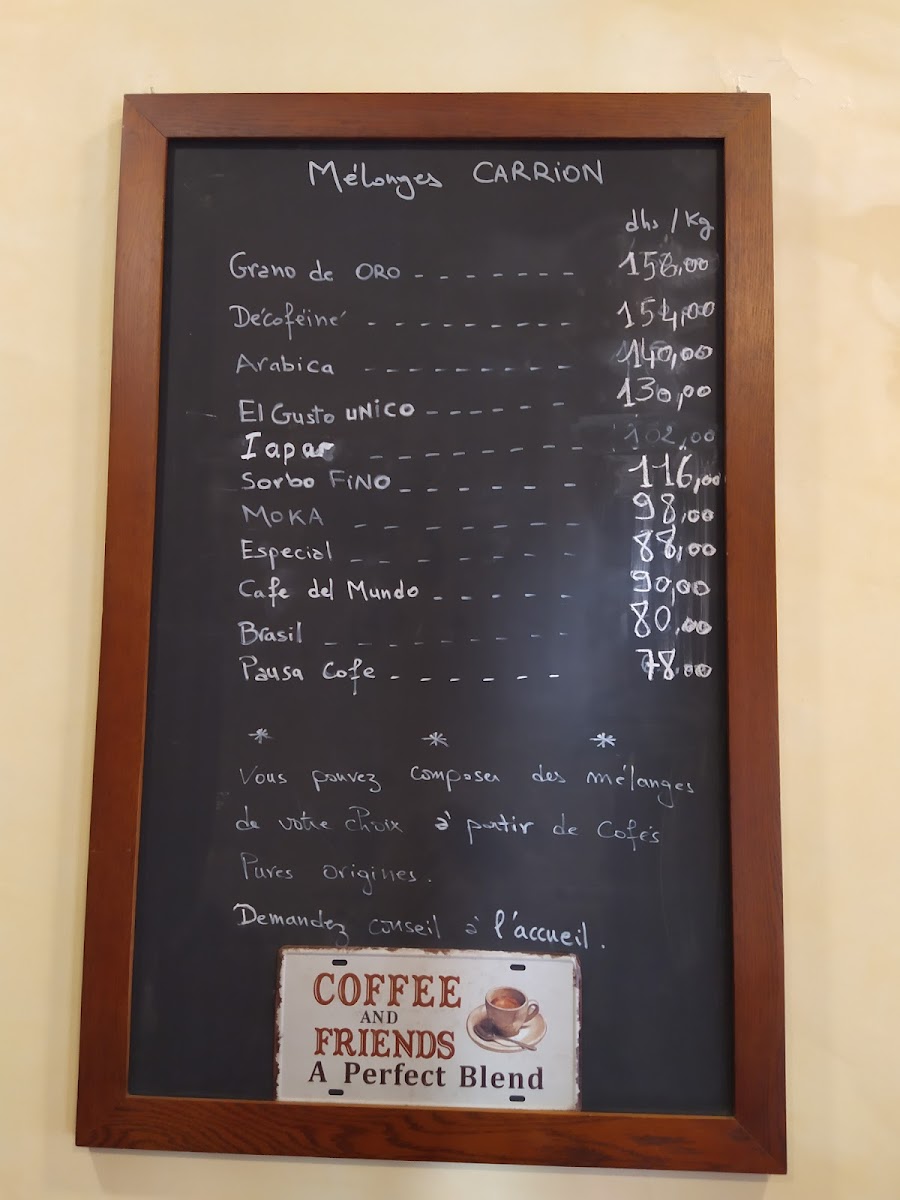 Mélanges CARRION
dhs / Kg
Grano de ORO - - - - - - - 158,00
Décaféiné - - - - - - - - 154,00
Arabica - - - - - - - - 140,00
El Gusto UNICO - - - - - - 130,00
Iapar - - - - - - - - 102,00
Sorbo FiNO - - - - - - 116,00
MOKA - - - - - - - - 98,00
Especial - - - - - - - - 88,00
Cafe del Mundo - - - - - - 90,00
Brasil - - - - - - - - - 80,00
Pausa Cafe - - - - - - 78,00
* * *
Vous pouvez composer des mélanges
de votre choix à partir de Cafés
Pures origines.
Demandez conseil à l'accueil.
COFFEE
AND
FRIENDS
A Perfect Blend